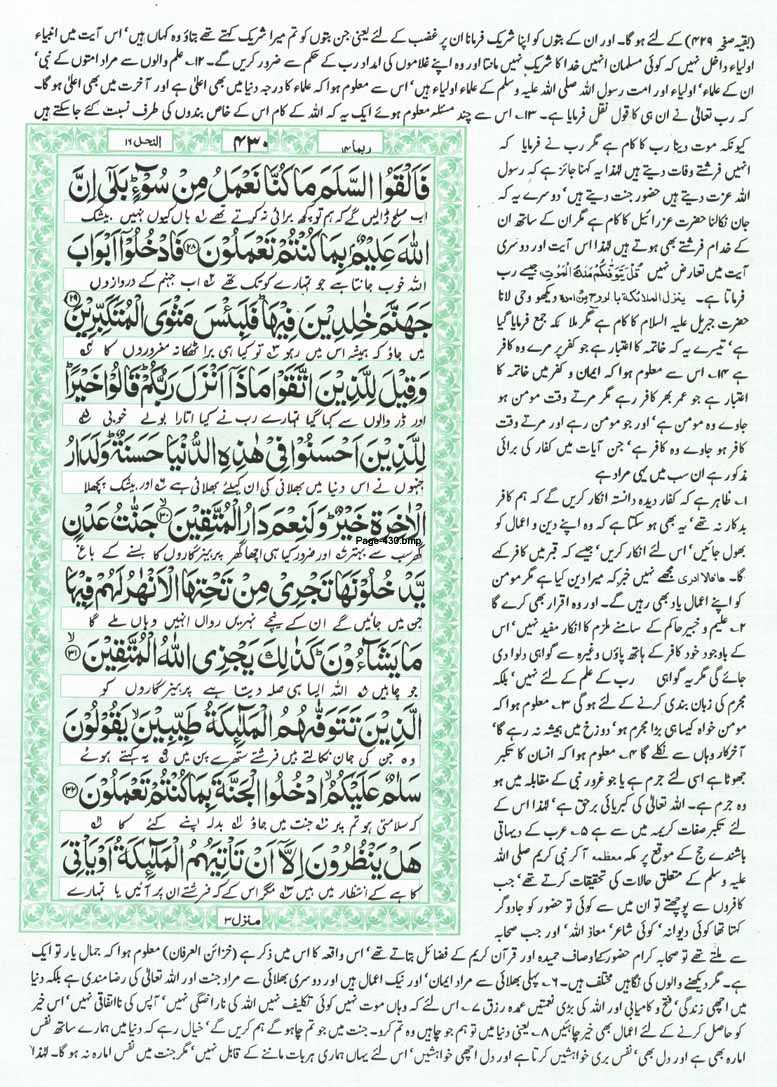 (بقیہ صفحہ ۴۲۹) کے لئے ہو گا۔ اور ان کے بتوں کو اپنا شریک فرمانا ان پر غضب کے لئے یعنی جن بتوں کو تم میرا شریک کہتے تھے بتاؤ وہ کہاں ہیں' اس آیت میں انبیاء
اولیاء داخل نہیں کہ کوئی مسلمان انہیں خدا کا شریک نہیں مانتا اور وہ اپنے غلاموں کی امداد رب کے حکم سے ضرور کریں گے۔ ۱۲۔ علم والوں سے مراد امتوں کے نبی'
ان کے علماء' اولیاء اور امت رسول اللہ صلی اللہ علیہ وسلم کے علماء اولیاء ہیں' اس سے معلوم ہوا کہ علماء کا درجہ دنیا میں بھی اعلیٰ ہے اور آخرت میں بھی اعلیٰ ہو گا۔
کہ رب تعالیٰ نے ان ہی کا قول نقل فرمایا ہے۔ ۱۳۔ اس سے چند مسئلہ معلوم ہوئے ایک یہ کہ اللہ کے کام اس کے خاص بندوں کی طرف نسبت کئے جا سکتے ہیں
ربما ۱۴
۴۳۰
النحل ۱۶
فَاَلْقَوُا السَّلَمَ مَا كُنَّا نَعْمَلُ مِنْ سُوْٓءٍ بَلٰٓى اِنَّ
اب صلح ڈالیں گے کہ ہم تو کچھ برائی نہ کرتے تھے ہاں کیوں نہیں بیشک
اللّٰهَ عَلِيْمٌۢ بِمَا كُنْتُمْ تَعْمَلُوْنَ ﴿۲۸﴾ فَادْخُلُوْٓا اَبْوَابَ
اللہ خوب جانتا ہے جو تمہارے کوتک تھے اب جہنم کے دروازوں
جَهَنَّمَ خٰلِدِيْنَ فِيْهَا فَلَبِئْسَ مَثْوَى الْمُتَكَبِّرِيْنَ ﴿۲۹﴾
میں جاؤ کہ ہمیشہ اس میں رہو تو کیا ہی برا ٹھکانہ مغروروں کا
وَقِيْلَ لِلَّذِيْنَ اتَّقَوْا مَاذَآ اَنْزَلَ رَبُّكُمْ قَالُوْا خَيْرًا
اور ڈر والوں سے کہا گیا تمہارے رب نے کیا اتارا بولے خوبی
لِلَّذِيْنَ اَحْسَنُوْا فِيْ هٰذِهِ الدُّنْيَا حَسَنَةٌ وَلَدَارُ
جنہوں نے اس دنیا میں بھلائی کی ان کیلئے بھلائی ہے اور بیشک پچھلا
الْاٰخِرَةِ خَيْرٌ وَلَنِعْمَ دَارُ الْمُتَّقِيْنَ ﴿۳۰﴾ جَنّٰتُ عَدْنٍ
گھر سب سے بہتر اور ضرور کیا ہی اچھا گھر پرہیزگاروں کا بسنے کے باغ
Page-430.bmp
يَّدْخُلُوْنَهَا تَجْرِيْ مِنْ تَحْتِهَا الْاَنْهٰرُ لَهُمْ فِيْهَا
جن میں جائیں گے ان کے نیچے نہریں رواں انہیں وہاں ملے گا
مَا يَشَآءُوْنَ كَذٰلِكَ يَجْزِي اللّٰهُ الْمُتَّقِيْنَ ﴿۳۱﴾
جو چاہیں اللہ ایسا ہی صلہ دیتا ہے پرہیزگاروں کو
الَّذِيْنَ تَتَوَفّٰىهُمُ الْمَلٰٓئِكَةُ طَيِّبِيْنَ يَقُوْلُوْنَ
وہ جن کی جان نکالتے ہیں فرشتے ستھرے پن میں یہ کہتے ہوئے
سَلٰمٌ عَلَيْكُمُ ادْخُلُوا الْجَنَّةَ بِمَا كُنْتُمْ تَعْمَلُوْنَ ﴿۳۲﴾
کہ سلامتی ہو تم پر جنت میں جاؤ بدلہ اپنے کئے کا
هَلْ يَنْظُرُوْنَ اِلَّآ اَنْ تَاْتِيَهُمُ الْمَلٰٓئِكَةُ اَوْ يَاْتِيَ
کاہے کے انتظار میں ہیں مگر اس کے کہ فرشتے ان پر آئیں یا تمہارے
منزل ۳
کیونکہ موت دینا رب کا کام ہے مگر رب نے فرمایا کہ
انہیں فرشتے وفات دیتے ہیں لہٰذا یہ کہنا جائز ہے کہ رسول
اللہ عزت دیتے ہیں حضور جنت دیتے ہیں' دوسرے یہ کہ
جان نکالنا حضرت عزرائیل کا کام ہے مگر ان کے ساتھ ان
کے خدام فرشتے بھی ہوتے ہیں لہٰذا اس آیت اور دوسری
آیت میں تعارض نہیں قُلْ يَتَوَفّٰىكُمْ مَلَكُ الْمَوْتِ جیسے رب
فرماتا ہے۔ ینزل الملائکۃ بالروح من امرہ دیکھو وحی لانا
حضرت جبریل علیہ السلام کا کام ہے مگر ملائکہ جمع فرمایا گیا
ہے' تیسرے یہ کہ خاتمہ کا اعتبار ہے جو کفر پر مرے وہ کافر
ہے ۱۴۔ اس سے معلوم ہوا کہ ایمان و کفر میں خاتمہ کا
اعتبار ہے جو عمر بھر کافر رہے مگر مرتے وقت مومن ہو
جاوے وہ مومن ہے' اور جو مومن رہے اور مرتے وقت
کافر ہو جاوے وہ کافر ہے' جن آیات میں کفار کی برائی
مذکور ہے ان سب میں یہی مراد ہے
۱۔ ظاہر ہے کہ کفار دیدہ دانستہ انکار کریں گے کہ ہم کافر
بدکار نہ تھے' یہ بھی ہو سکتا ہے کہ وہ اپنے دین و اعمال کو
بھول جائیں' اس لئے انکار کریں' جیسے کہ قبر میں کافر کہے
گا۔ ھاہ لا ادری مجھے نہیں خبر کہ میرا دین کیا ہے مگر مومن
کو اپنے اعمال یاد بھی رہیں گے۔ اور وہ اقرار بھی کرے گا
۲۔ علیم و خبیر حاکم کے سامنے ملزم کا انکار مفید نہیں' اس
کے باوجود خود کافر کے ہاتھ پاؤں وغیرہ سے گواہی دلوا دی
جائے گی مگر یہ گواہی رب کے علم کے لئے نہیں' بلکہ
مجرم کی زبان بندی کرنے کے لئے ہو گی ۳۔ معلوم ہوا کہ
مومن خواہ کیسا ہی بڑا مجرم ہو' دوزخ میں ہمیشہ نہ رہے گا'
آخر کار وہاں سے نکلے گا ۴۔ معلوم ہوا کہ انسان کا تکبر
جھوٹا ہے اسی لئے جرم ہے یا جو غرور نبی کے مقابلہ میں ہو
وہ جرم ہے۔ اللہ تعالیٰ کی کبریائی برحق ہے' لہٰذا اس کے
لئے تکبر صفات کریمہ میں سے ہے ۵۔ عرب کے دیہاتی
باشندے حج کے موقع پر مکہ معظمہ آ کر نبی کریم صلی اللہ
علیہ وسلم کے متعلق حالات کی تحقیقات کرتے تھے' جب
کافروں سے پوچھتے تو ان میں سے کوئی تو حضور کو جادوگر
کہتا تھا کوئی دیوانہ' کوئی شاعر' معاذ اللہ' اور جب صحابہ
سے ملتے تھے تو صحابہ کرام حضور کے اوصاف حمیدہ اور قرآن کریم کے فضائل بتاتے تھے' اس واقعہ کا اس میں ذکر ہے (خزائن العرفان) معلوم ہوا کہ جمال یار تو ایک
ہے۔ مگر دیکھنے والوں کی نگاہیں مختلف ہیں۔ ۶۔ پہلی بھلائی سے مراد ایمان' اور نیک اعمال ہیں اور دوسری بھلائی سے مراد جنت اور اللہ تعالیٰ کی رضامندی ہے بلکہ دنیا
میں اچھی زندگی' فتح و کامیابی اور اللہ کی بڑی نعمتیں عمدہ رزق ۷۔ اس لئے کہ وہاں موت نہیں کوئی تکلیف نہیں اللہ کی ناراضگی نہیں' آپس کی نااتفاقی نہیں' اس خیر
کو حاصل کرنے کے لئے اعمال بھی خیر چاہئیں ۸۔ یعنی دنیا میں تو ہم جو چاہیں وہ تم کرو۔ جنت میں جو تم چاہو گے ہم کریں گے' خیال رہے کہ دنیا میں ہمارے ساتھ نفس
امارہ بھی ہے اور دل بھی' نفس بری خواہشیں کرتا ہے اور دل اچھی خواہشیں' اس لئے یہاں ہماری ہر بات ماننے کے قابل نہیں' مگر جنت میں نفس امارہ نہ ہو گا۔ لہٰذا